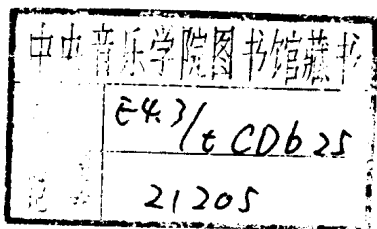 中央音乐学院图书馆藏书
E4.3/t CDb25
21205